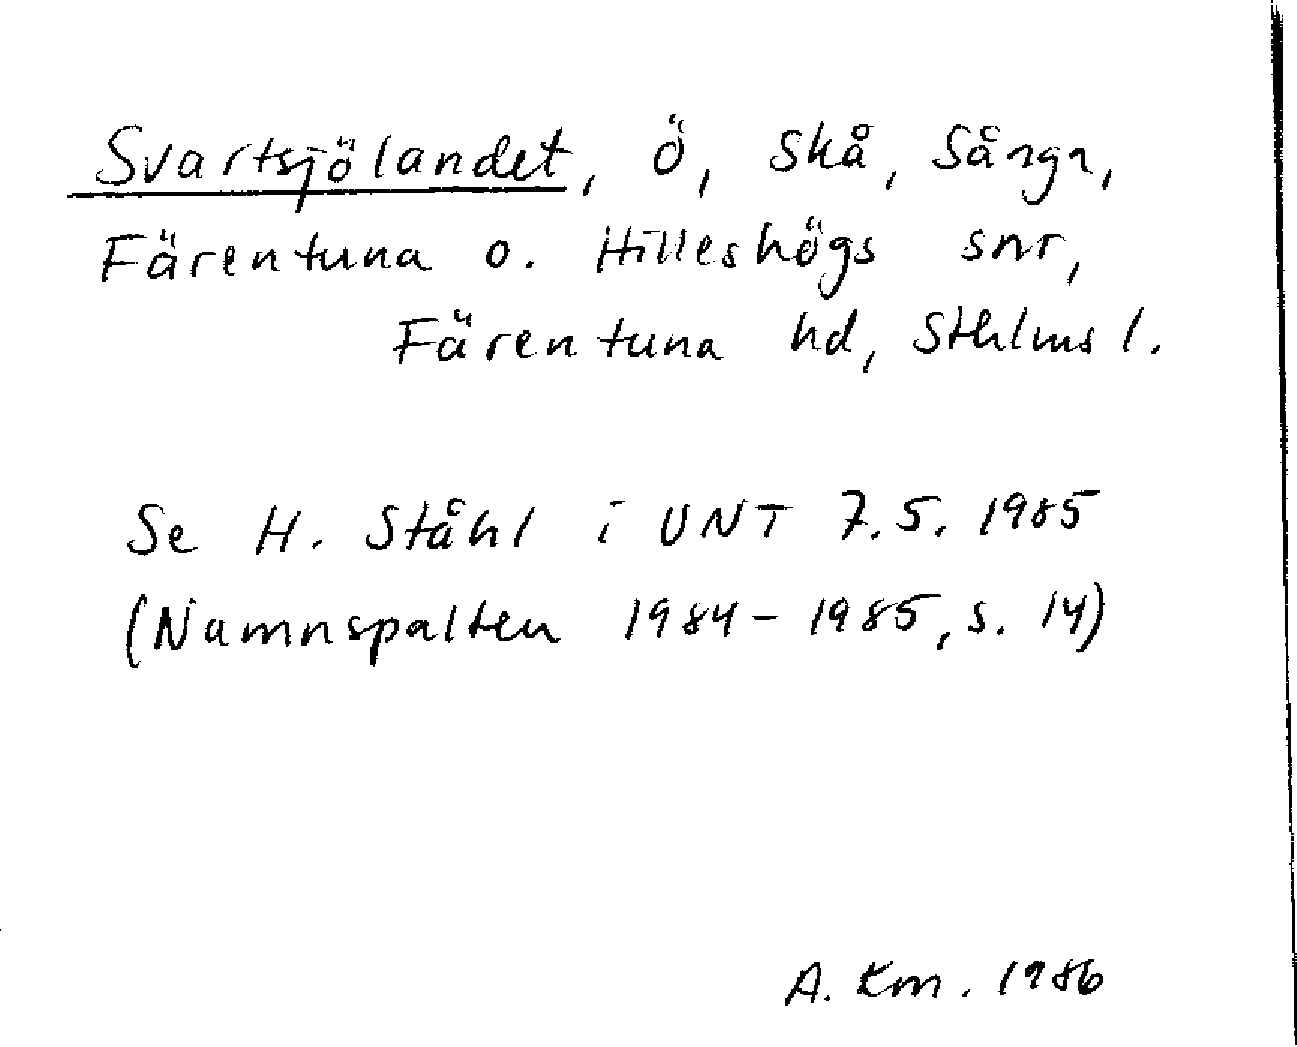 Svartsjölandet, ö, Skå, Sånga,
Färentuna o. Hilleshögs snr,
Färentuna hd, Sthlms l.
Se H. Ståhl i UNT 7.5. 1985
(Namnspalten 1984-1985, s. 14)
A. Km. 1986